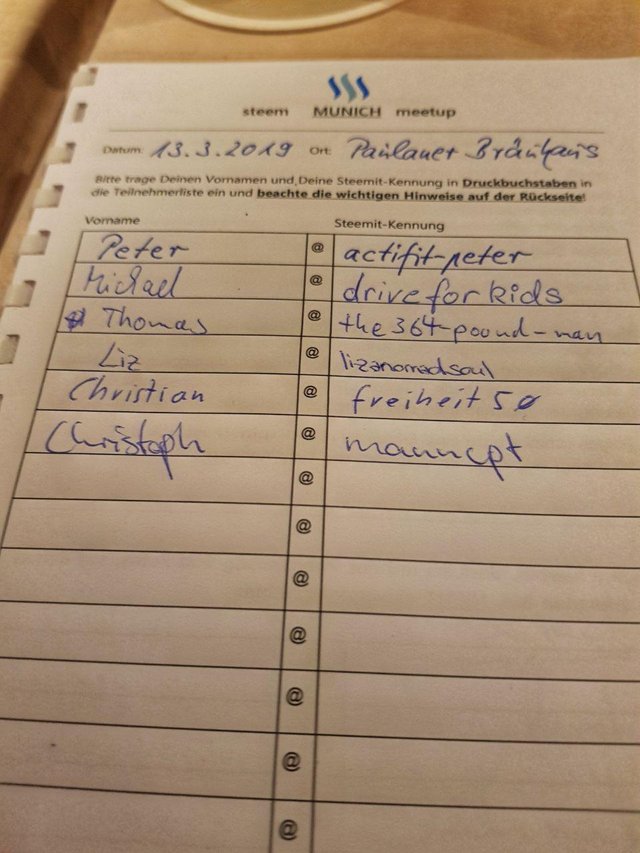 steem MUNICH meetup
Datum: 13.3.2019 Ort: Paulaner Bräuhaus
Bitte trage Deinen Vornamen und Deine Steemit-Kennung in Druckbuchstaben in
die Teilnehmerliste ein und beachte die wichtigen Hinweise auf der Rückseite!
Vorname Steemit-Kennung
Peter @ actifit-peter
Michael @ driveforkids
Thomas @ the364-pound-man
Liz @ lizanomadsoul
Christian @ freiheit50
Christoph @ manncpt
@
@
@
@
@
@
@